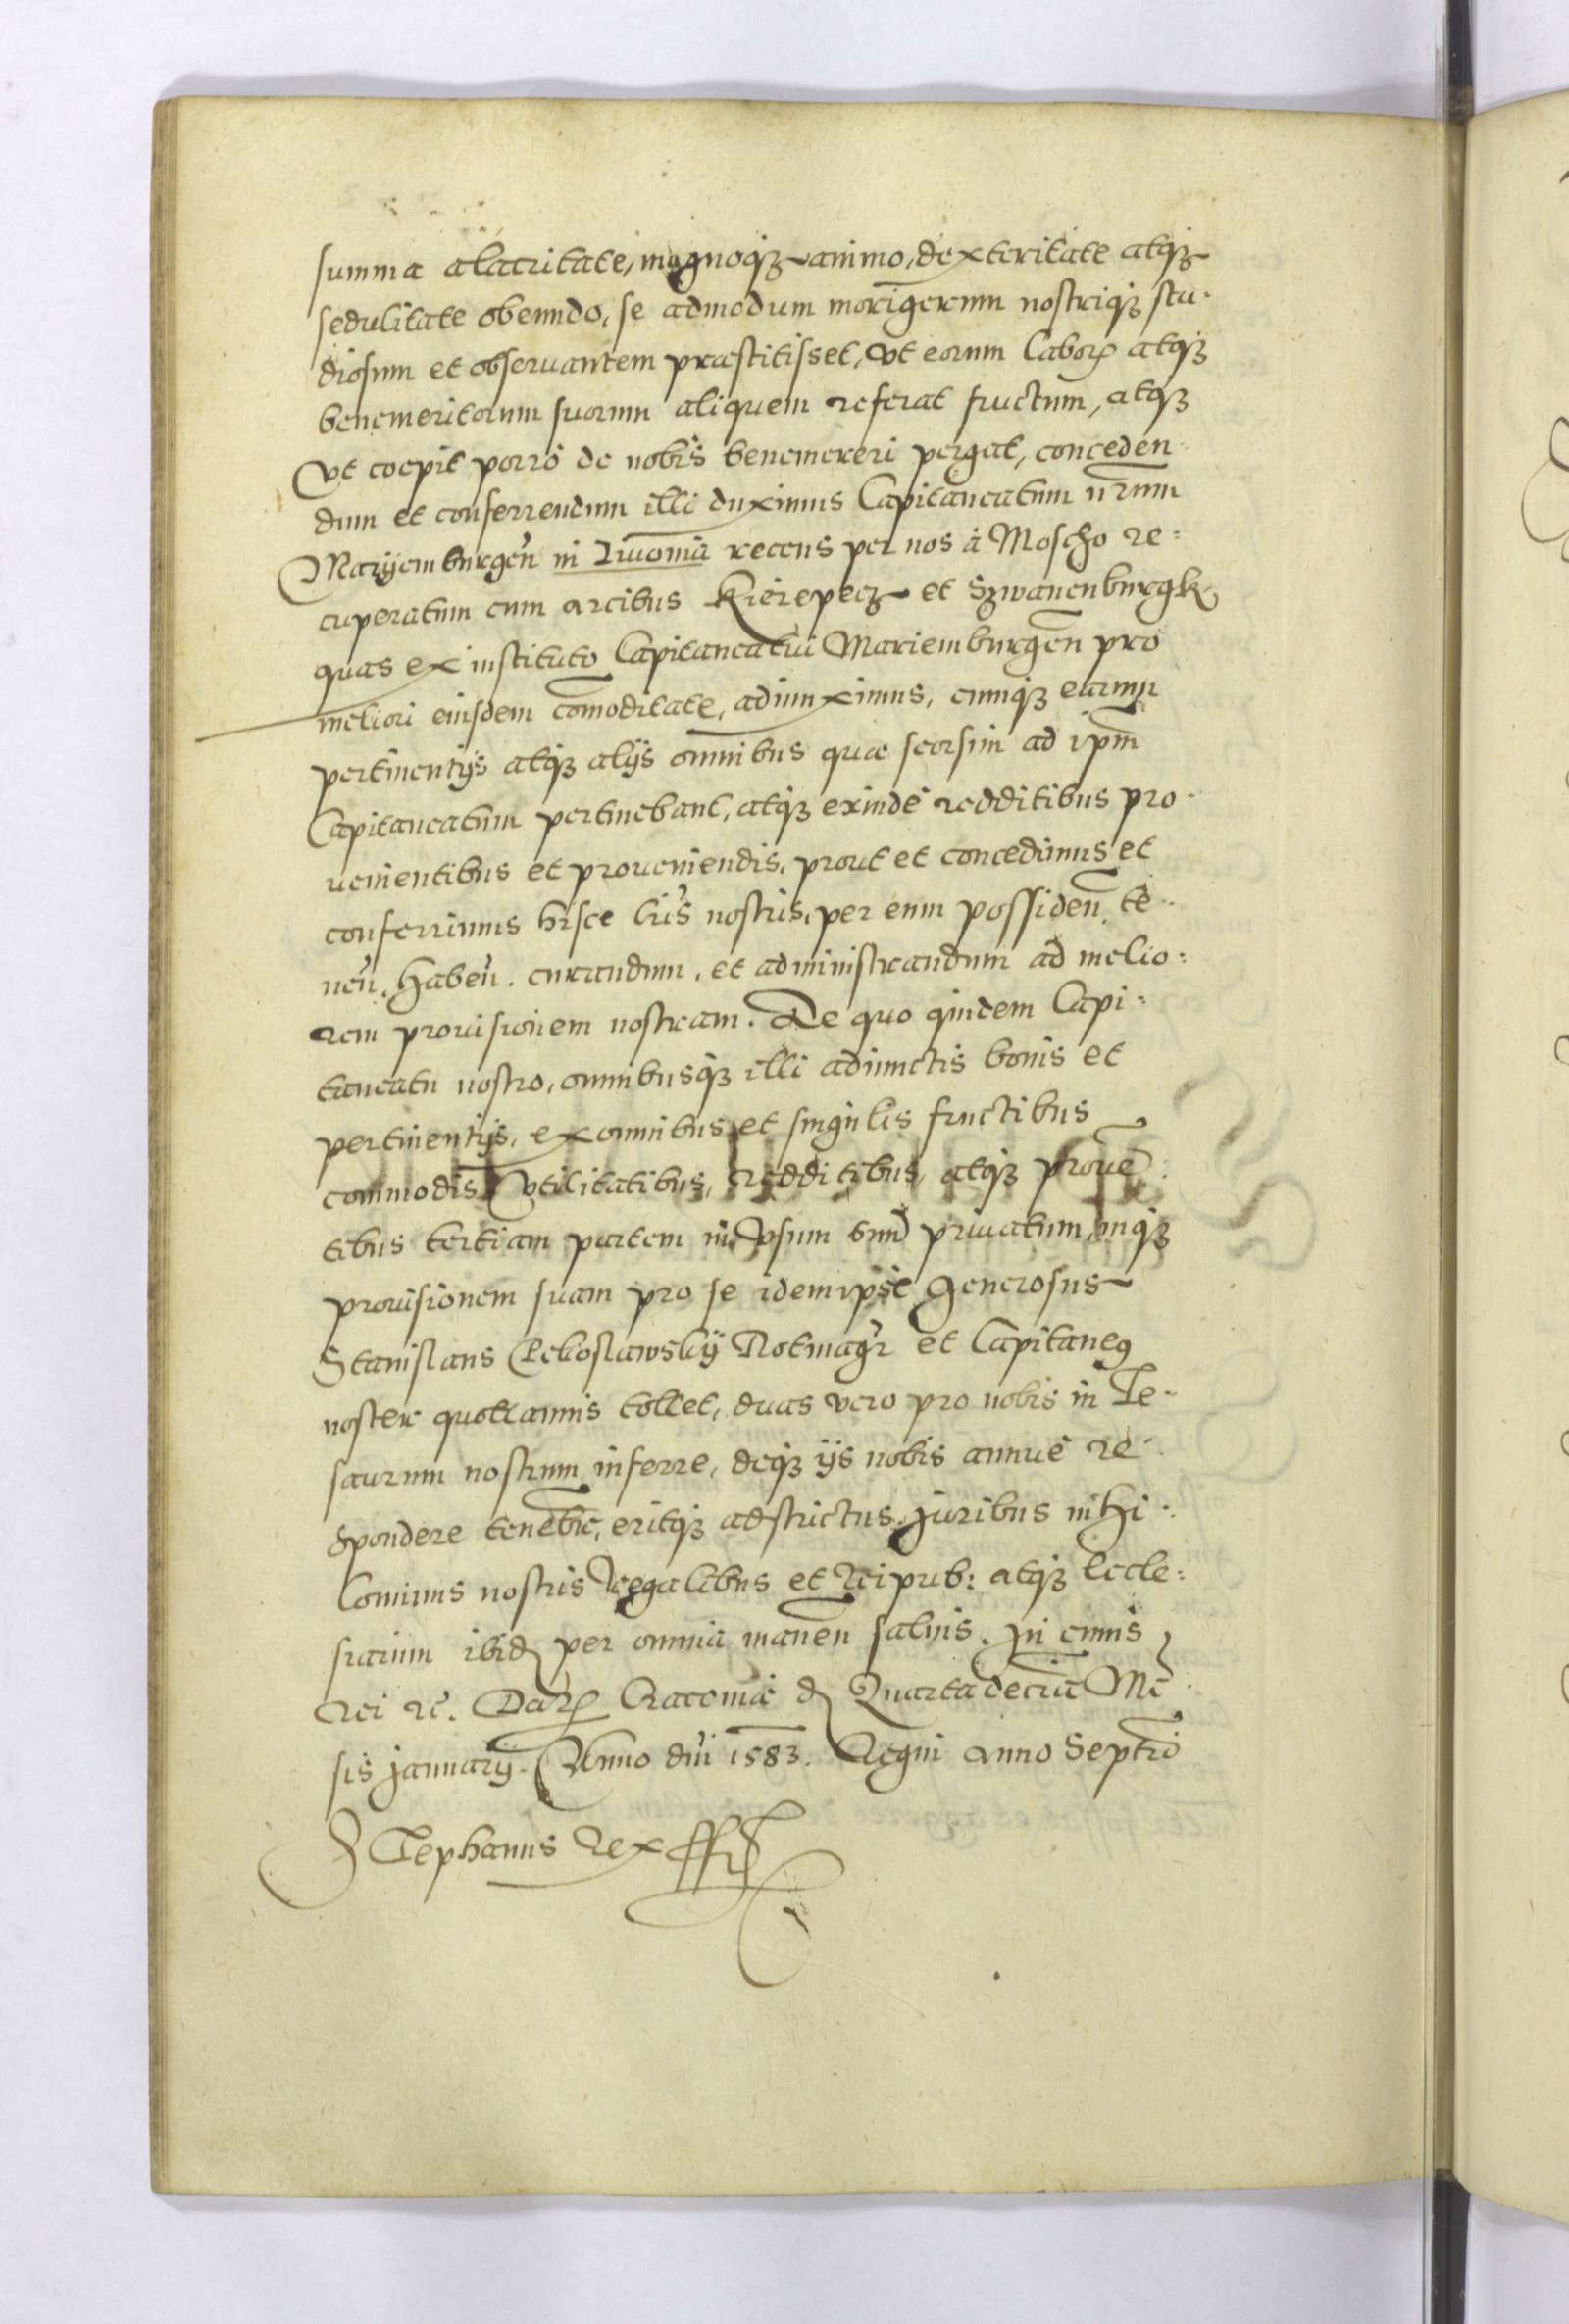 summa alacritate, magnoq₃ animo, dexteritate atq₃
sedulitate obeundo, se admodum morigerum nostriq₃ stu-
diosum et obseruantem præstitisset, vt eorum laborꝝ atq₃
benemeritorum suorum aliquem referat fructum, atq₃
vt coepit porrò de nobis benemereri pergat, conceden-
dum et conferrendum illi duximus Capitaneatum nr̄um
Maryemburgen̄ in Liuonia recens per nos à Moscho re-
cuperatum cum arcibus Kierepecz et Szwanenburgk
quas ex instituto Capitaneatui Mariemburgen̄ pro
meliori eiusdem com̄oditate, adiunximus, cumq₃ earum
pertinentijs atq₃ alijs omnibus quæ seorsim ad ipm̄
Capitaneatum pertinebant, atq₃ exinde redditibus pro-
uenientibus et proueniendis, prout et concedimus et
conferrimus hisce lr̄is nostris, per eum possiden̄. te-
nen̄. haben̄. curandum. et administrandum ad melio-
rem prouisionem nostram. De quo quidem Capi-
taneatu nostro, omnibusq₃ illi adiunctis bonis et
pertinentijs, ex omnibus et singulis fructibus
commodis vtilitatibus, redditibus, atq₃ prouē-
tibus tertiam partem in vsum suum priuatum, inq₃
prouisionem suam pro se idem ipse Generosus
Stanislaus Pekoslawskÿ Rotmagr̄ et Capitaneꝰ
noster quottannis tollet, duas vero pro nobis in Te-
saurum nostrum inferre, deq₃ ijs nobis annuè re-
spondere tenebit̄, eritq₃ adstrictus. Juribus nihi-
lominus nostris Regalibus et Reipub: atq₃ Eccle-
siarum ibidꝫ per omnia manen̄ saluis. In cuius
rei rc̄. Datꝝ Cracouiæ dꝫ Quartadecim̄a Mē-
sis January. Anno dn̄i 1583. Regni anno Septīo
Stephanus Rex sst